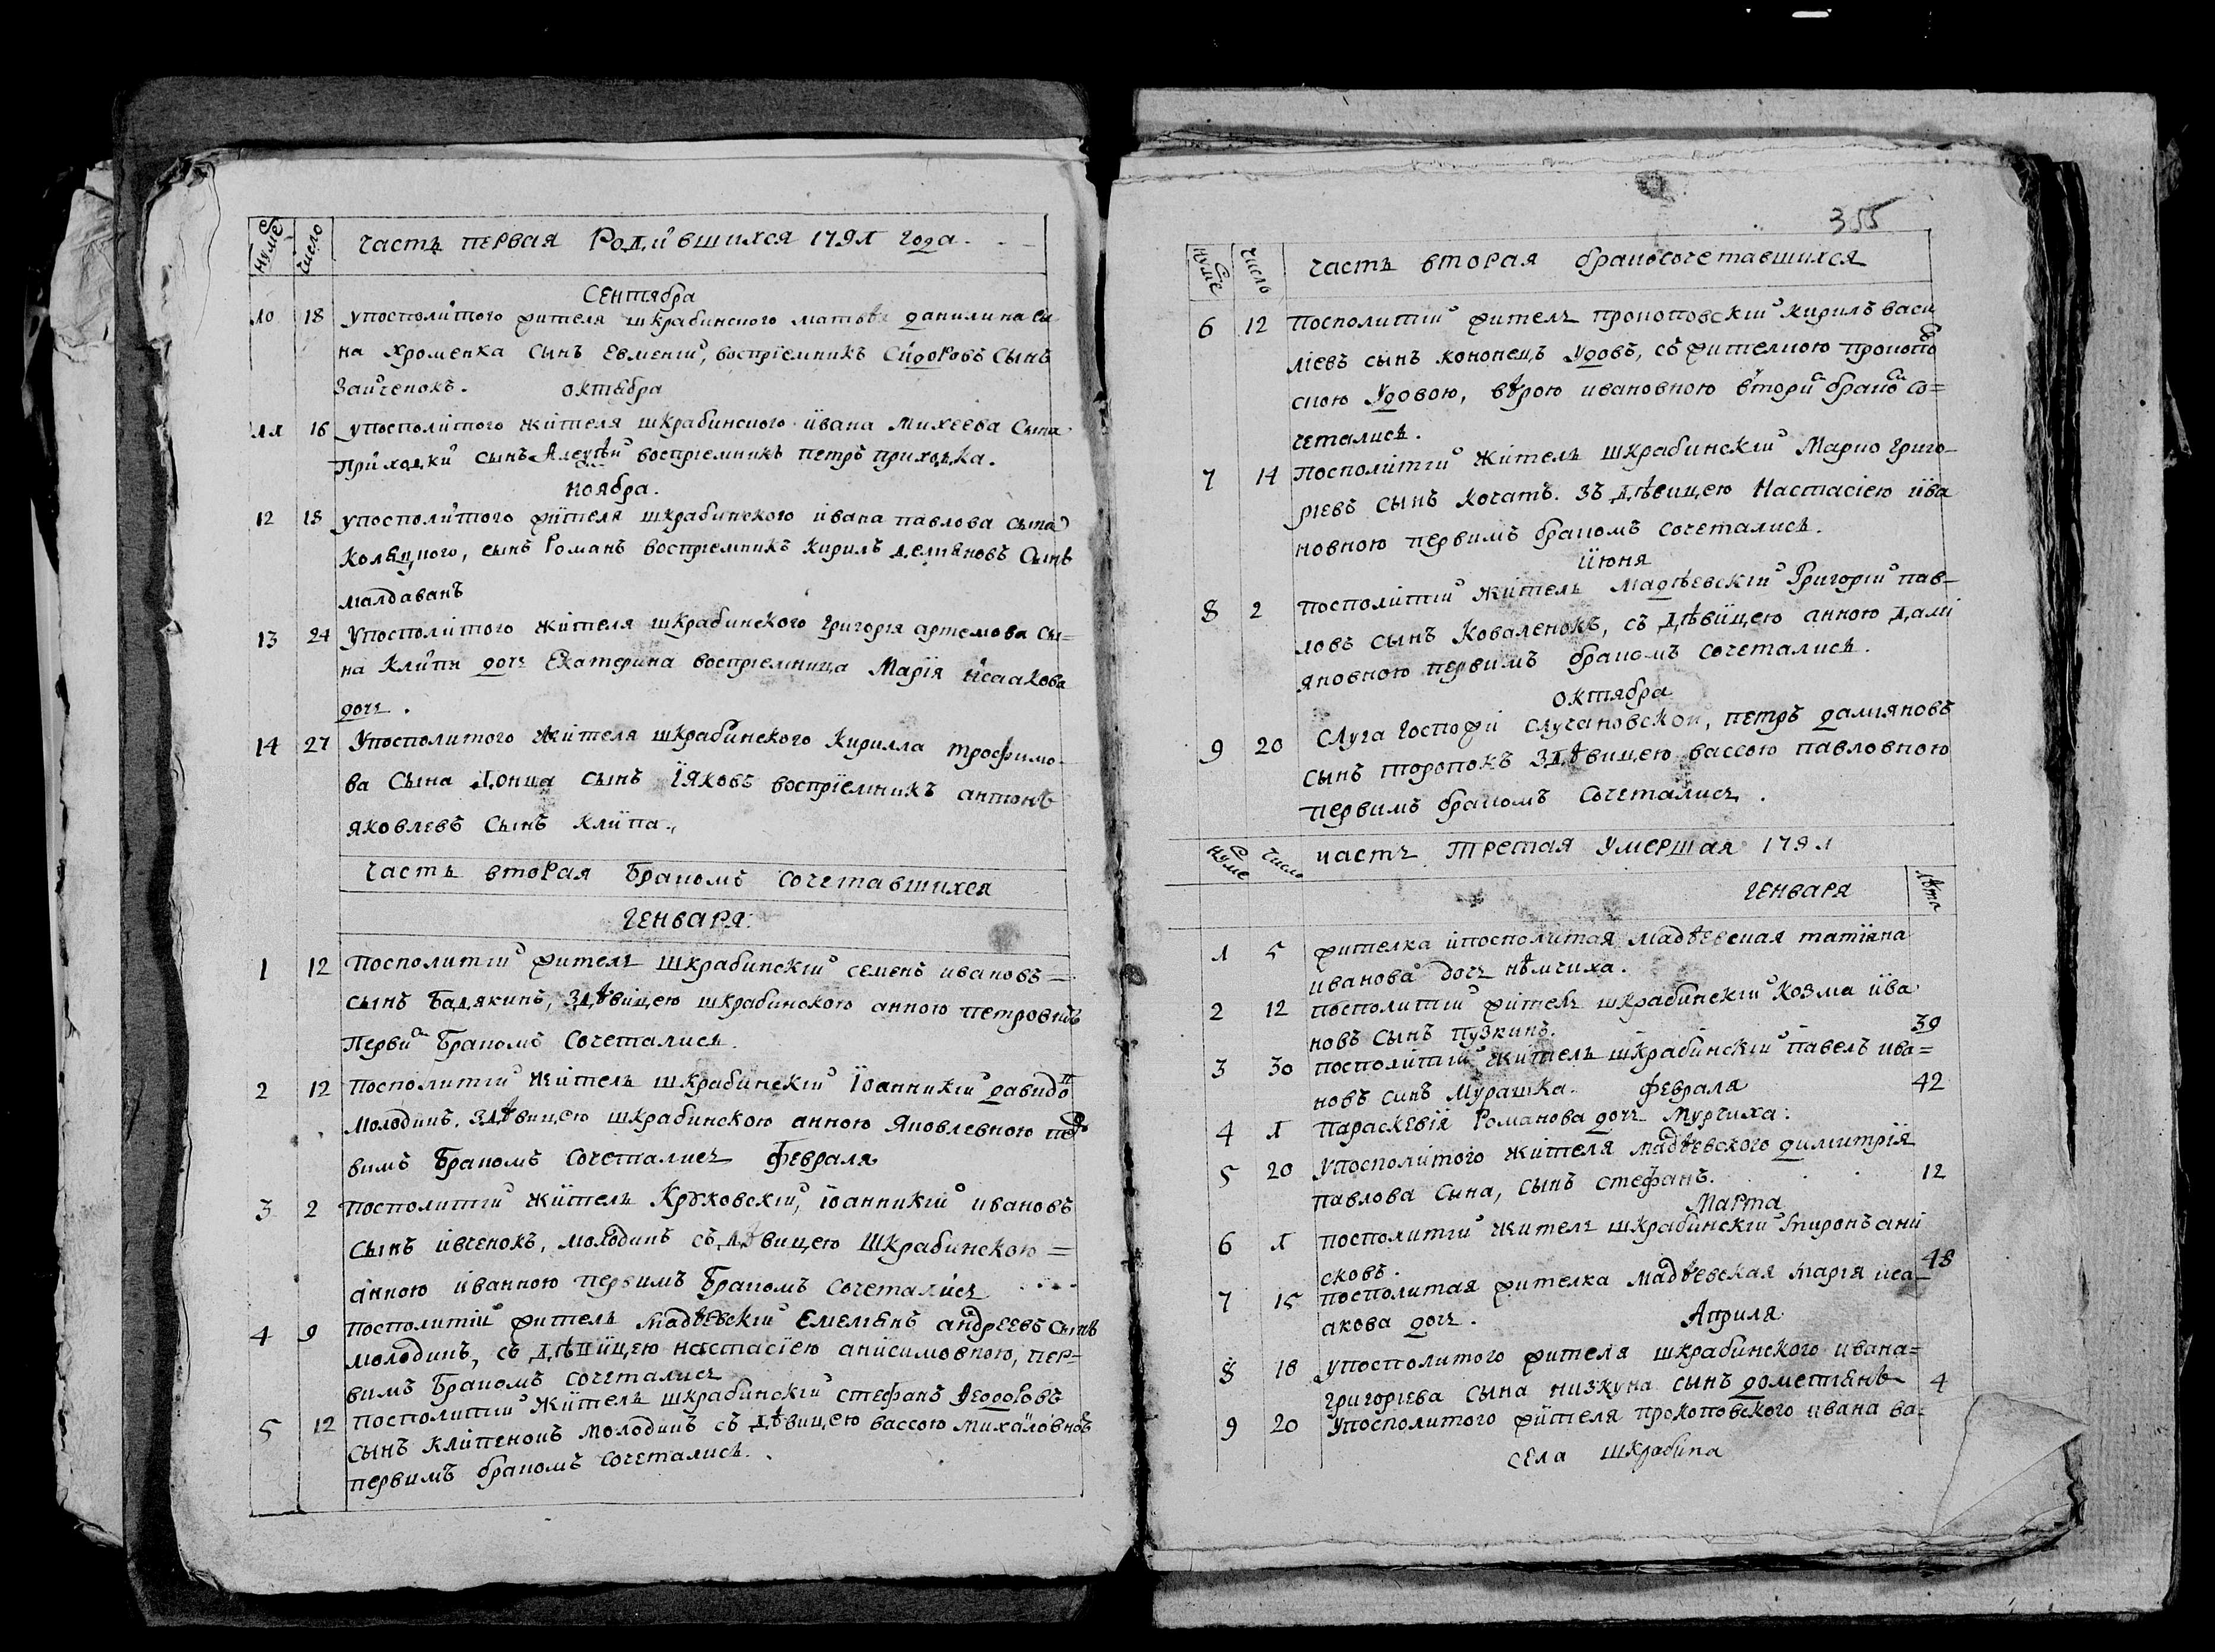 нумеръ число часть первая Родившихся 1791 года.
Сентября
10 18 упосполитого жителя шкрабинского матвѣ данилина сы
на хроменка сынъ Евмений, восприемникъ Сидоровъ сынъ
Зайченокъ. октебра
11 16 упосполитого жителя шкрабинского ивана Михеева Сина
приходки сынъ Алеѯѣй восприемникъ петръ приходка.
ноября.
12 18 упосполитого жителя шкрабинского ивана павлова сына
сынъ Романъ восприемникъ кирилъ демяновъ Сынъ
малдаванъ
13 24 Упосполитого жителя шкрабинского григория артемова сы=
на Клипи дочь Екатерина восприемница Мария Исаакова
дочь.
14 27 Упосполитого жителя шкрабинского Кирилла трофимо-
ва Сына Донца сынъ Їяковъ восприемникъ антонъ
яковлевъ сынъ клипа.
Часть вторая Бракомъ сочетавшихся
генваря.
1 12 Посполитий житель Шкрабинский семенъ ивановъ=
сынъ Бадякинъ, здѣвицею шкрабинского анною петровнѣ
Перви Бракомъ Сочетались.
2 12 Посполитий житель шкрабинский Їоанникий давидо
молодикъ, здѣвицею шкрабинскою анною Яковлевною пер
вимъ Бракомъ Сочеталисъ Февраля
3 2 посполитий житель Крѹковский, їоанникий ивановъ
сынъ ивченокъ, молодикъ съ дѣвицею Шкрабинскою=
анною иванною первимъ Бракомъ сочеталисъ
4 9 посполитий житель Мадѣевский Емелянъ андреевъ сынъ
молодикъ, съ дѣвицею настасиею анисимовною, пер-
вимъ Бракомъ сочеталисъ
5 12 посполитий житель шкрабинский стефанъ Ѳеодоровъ
сынъ клипенокъ молодикъ съ дѣвицею вассою михайловнѣ
первимъ бракомъ сочетались.
355
нумеръ число часть вторая бракосочетавшихся
6 12 Посполитий жителъ прокоповский кирилъ васи
лиевъ сынъ кононецъ удовъ, съ жителкою прокопов
скою удовою, вѣрою ивановною втори брако со=
четались.
7 14 Посполитий житель шкрабинский Марко григо-
риевъ сынъ кочатъ. зъ дѣвицею Настасиею ива
новною первимъ бракомъ сочетались.
Июня
8 2 посполитий житель Мадѣевский Григорий пав-
ловъ сынъ Коваленокъ, съ дѣвицею анною дами
яновною первимъ бракомъ сочетались.
октября
9 20 Слуга Госпожи Случановской, петръ дамияновъ
сынъ торопокъ здѣвицею вассою павловною
первимъ бракомъ Сочеталисъ.
нумеръ число часть Третая Умершая 1791
генваря лѣта
1 5 жителка посполитая мадѣевская татияна
иванова дочъ нѣмчиха.
2 12 посполитий житель шкрабинский козма ива
новъ сынъ пузкинъ. 39
3 30 посполитий житель шкрабинский павелъ ива=
новъ синъ Мурашка. февраля 42
4 1 Параскевия Романова дочъ Мурчиха.
5 20 Упосполитого жителя мадѣевского димитрия
павлова Сына, сынъ стефанъ. 12
Марта
6 1 посполитий жителъ шкрабинский Миронъ ани
сковъ. 48
7 15 посполитая жителка мадѣевская мария иса-
акова дочъ. Априля
8 18 упосполитого жителя шкрабинского ивана=
Григориева Сына низкуна сынъ дометиянъ 4
9 20 Упосполитого жителя прокоповского ивана ва-
села шкрабина